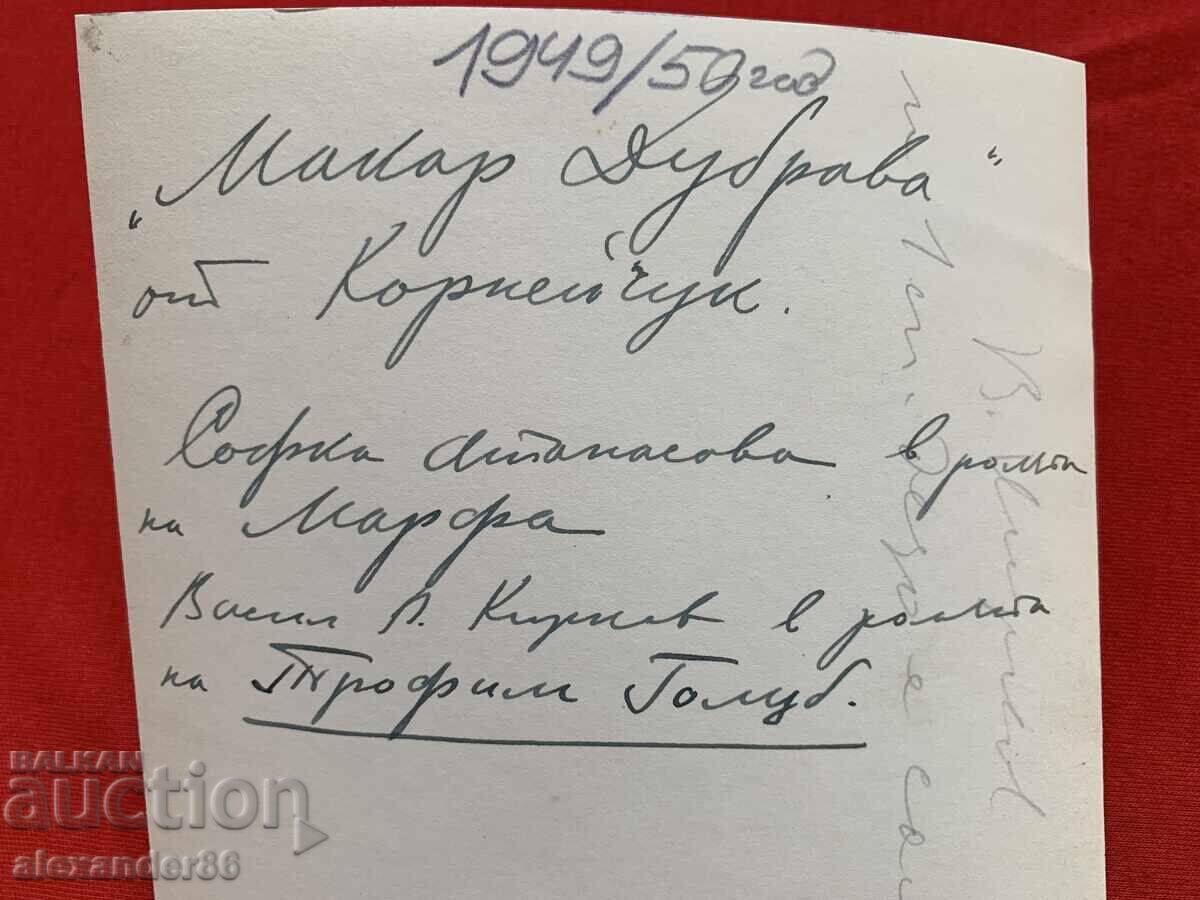 1949/50 год
„Макар Дубрава"
от Корнейчук.
София Атанасова в ролята
на Марфа
Васил П. Кирков в ролята
на Трофим Голуб.
BALKAN
auction
alexander86